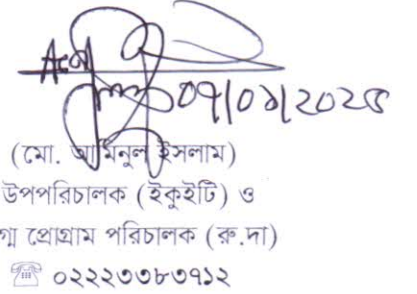 ০৭/০১/২০২৫
(মো. আমিনুল ইসলাম)
উপপরিচালক (ইকুইটি) ও
প্রোগ্রাম পরিচালক (রু.দা)
☎ ০২২২৩৩৮৩৭১২